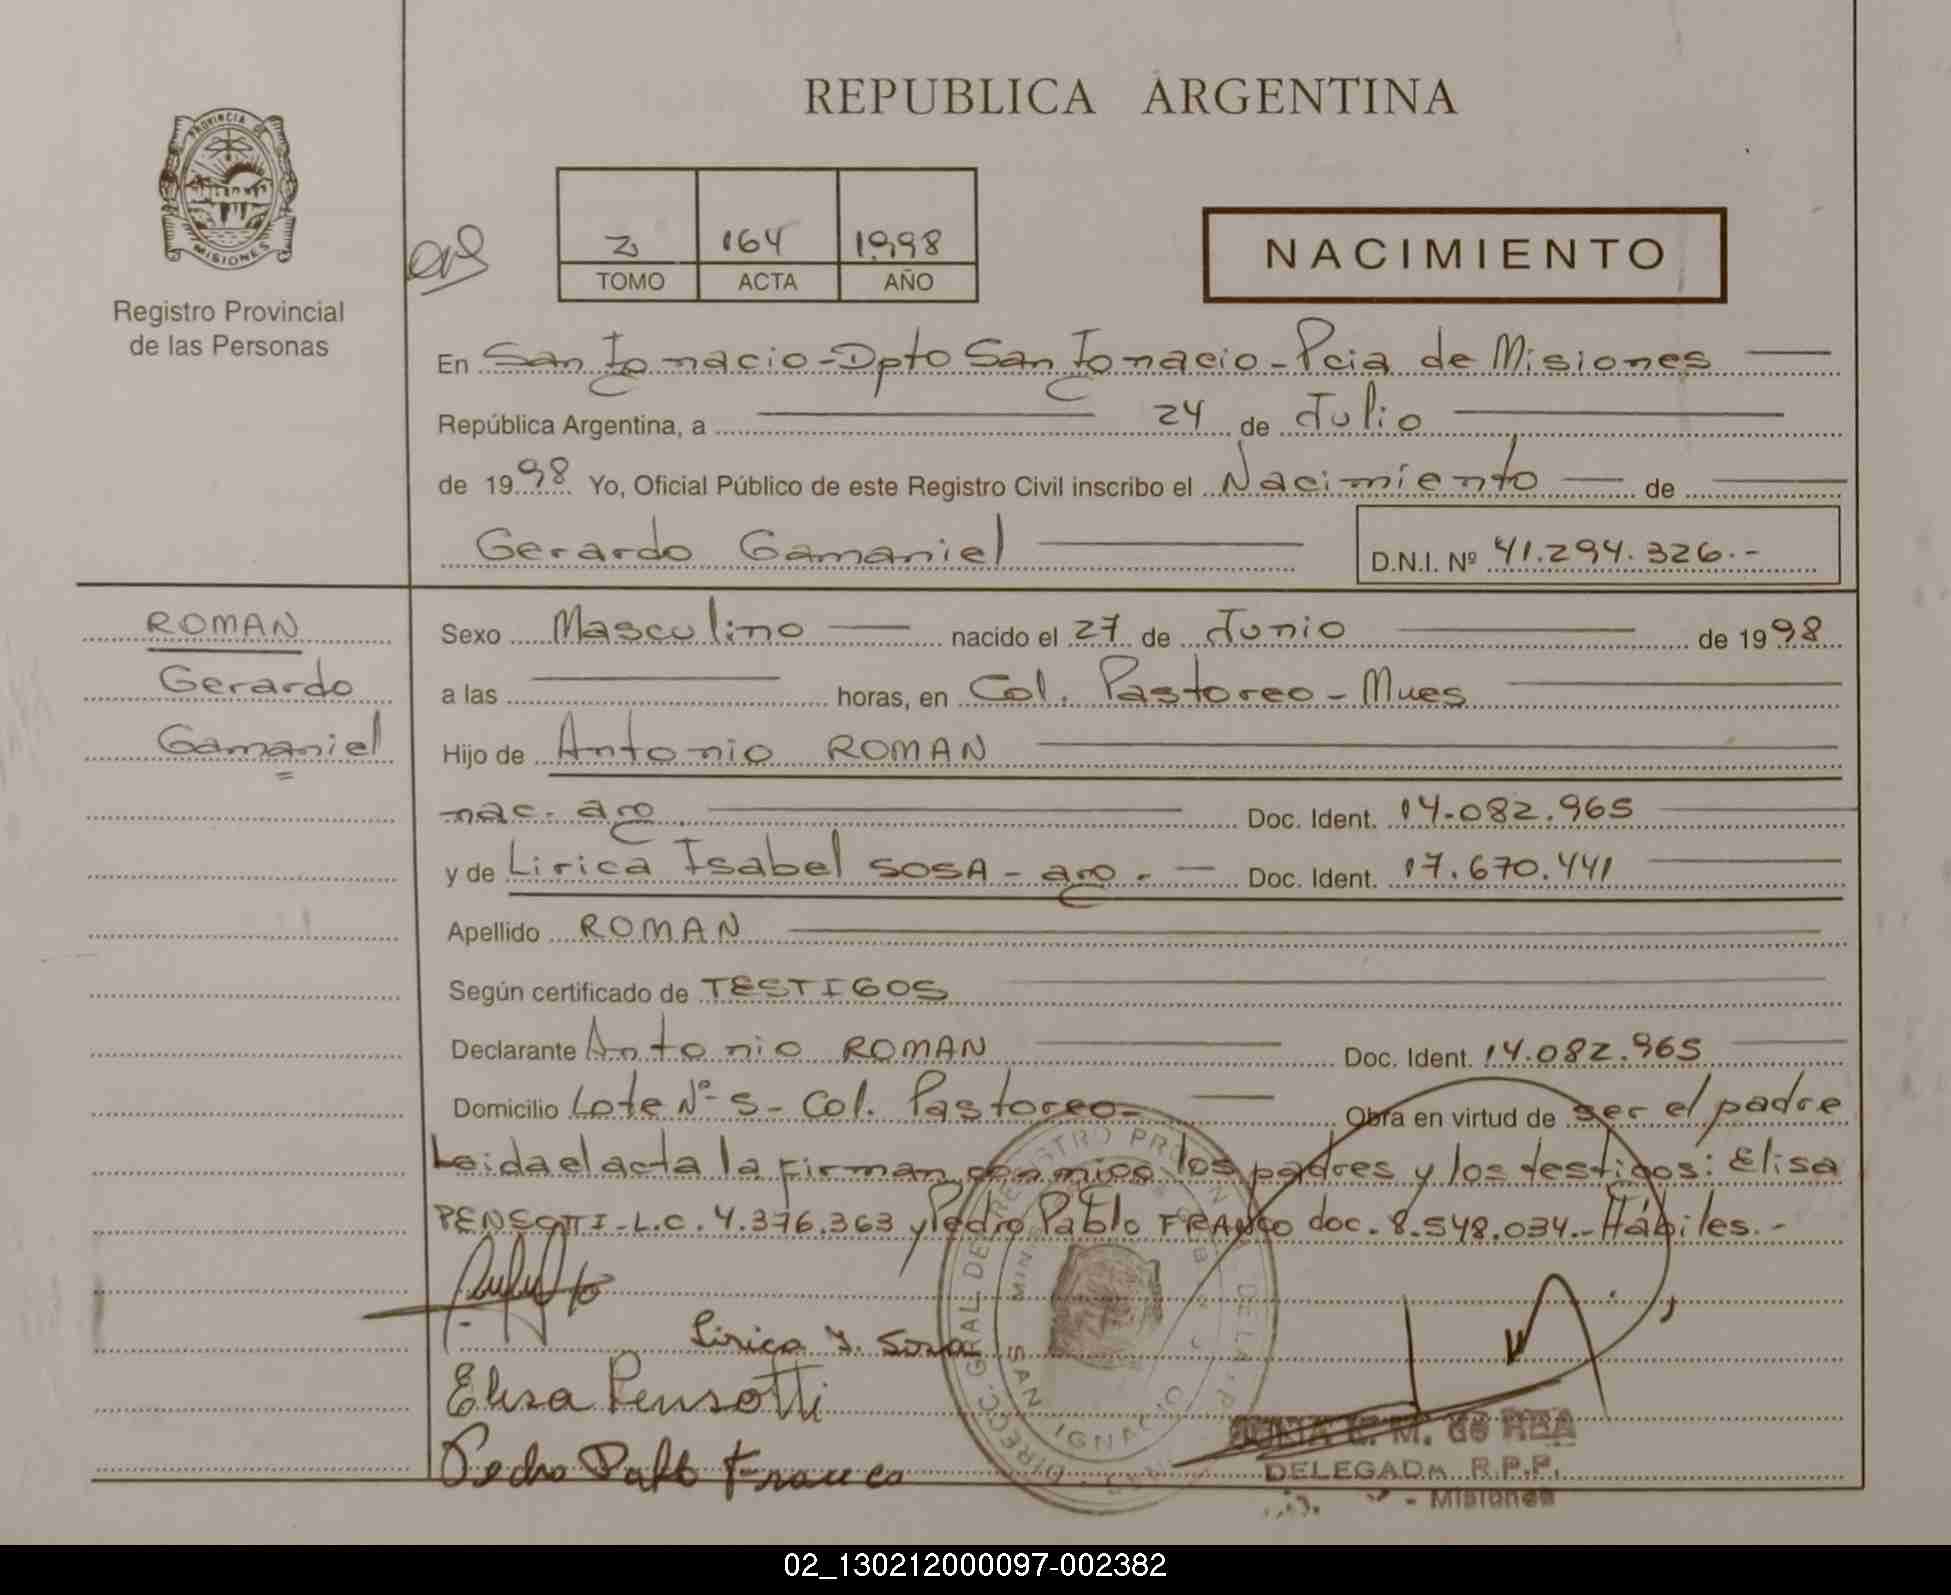 REPUBLICA ARGENTINA
PROVINCIA DE
MISIONES
Registro Provincial
de las Personas
2 164 1998
TOMO ACTA AÑO
NACIMIENTO
En San Ignacio - Dpto San Ignacio - Pcia de Misiones
República Argentina, a 24 de Julio
de 1998 Yo, Oficial Público de este Registro Civil inscribo el Nacimiento de
Gerardo Gamaniel D.N.I. Nº 41.294.326.-
ROMAN
Gerardo
Gamaniel
Sexo Masculino nacido el 27 de Junio de 1998
a las horas, en Col. Pastoreo - Mnes
Hijo de Antonio ROMAN
nac. arg Doc. Ident. 14.082.965
y de Lirica Isabel SOSA - arg. - Doc. Ident. 17.670.441
Apellido ROMAN
Según certificado de TESTIGOS
Declarante Antonio ROMAN Doc. Ident. 14.082.965
Domicilio Lote Nº 5 - Col. Pastoreo - Obra en virtud de ser el padre
Leida el acta la firman conmigo los padres y los testigos: Elisa
PENSOTTI - L.C. 4.376.363 y Pedro Pablo FRANCO doc. 8.548.034.- Hábiles.-
Lirica I. Sosa
Elisa Pensotti
Pedro Pablo Franco
SAN IGNACIO
M. de REA
DELEGADA R.P.P.
- Misiones
02_130212000097-002382